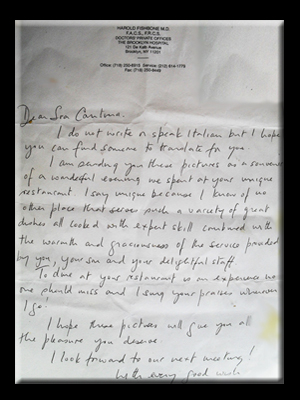 HAROLD FISHBONE M.D.
F.A.C.S., F.R.C.S.
DOCTORS' PRIVATE OFFICES
THE BROOKLYN HOSPITAL
121 De Kalb Avenue
Brooklyn, NY 11201
Dear Sra
I do not write or speak Italian but I hope
you can find someone to translate for you.
I am sending you these pictures as a souvenir
of a wonderful evening we spent at your unique
restaurant. I say unique because I know of no
other place that serves such a variety of great
dishes all cooked with expert skill combined with
the warmth and graciousness of the service provided
by you, your son and your delightful staff.
To dine at your restaurant is an experience no
one should miss and I sing your praises wherever
I go!
I hope these pictures will give you all
the pleasure you deserve
I look forward to our next meeting!
With every good wish